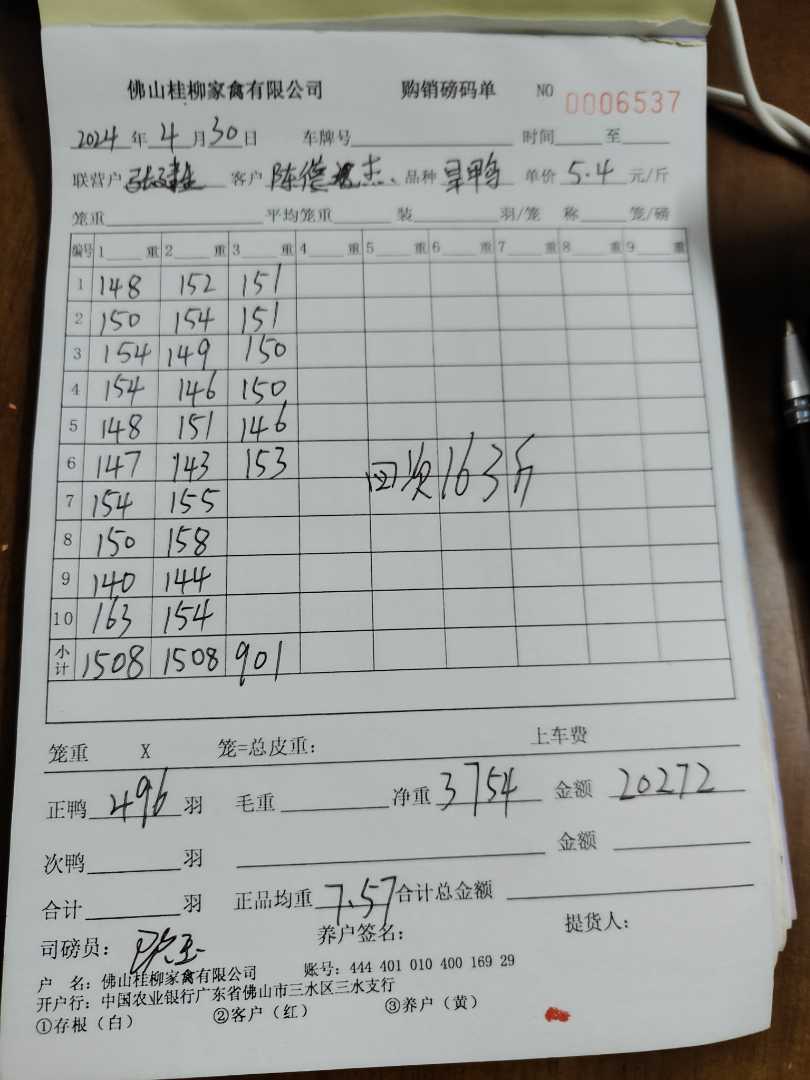 佛山桂柳家禽有限公司 购销磅码单 NO 0006537
2024年4月30日 车牌号 时间 至
联营户 客户 陈 杰 品种 旱鸭 单价 5.4 元/斤
笼重 平均笼重 装 羽/笼 称 笼/磅
编号 1 重 2 重 3 重 4 重 5 重 6 重 7 重 8 重 9 重
1 148 152 151
2 150 154 151
3 154 149 150
4 154 146 150
5 148 151 146
6 147 143 153
回 163斤
7 154 155
8 150 158
9 140 144
10 163 154
小计 1508 1508 901
笼重 X 笼=总皮重: 上车费
正鸭 496 羽 毛重 净重 3754 金额 20272
次鸭 羽 金额
合计 羽 正品均重 7.57 合计总金额
司磅员: 养户签名: 提货人:
户 名: 佛山桂柳家禽有限公司 账号: 444 401 010 400 169 29
开户行: 中国农业银行广东省佛山市三水区三水支行
①存根（白） ②客户（红） ③养户（黄）